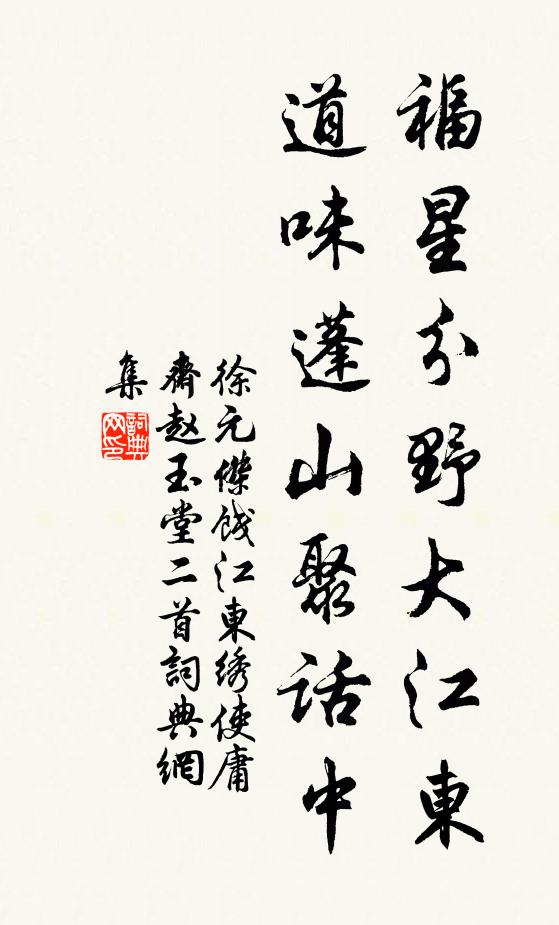 福星分野大江東
道味蓬山聚話中
徐元傑餞江東綉使庸
齋赵玉堂二首詞典網
集
詞典网印